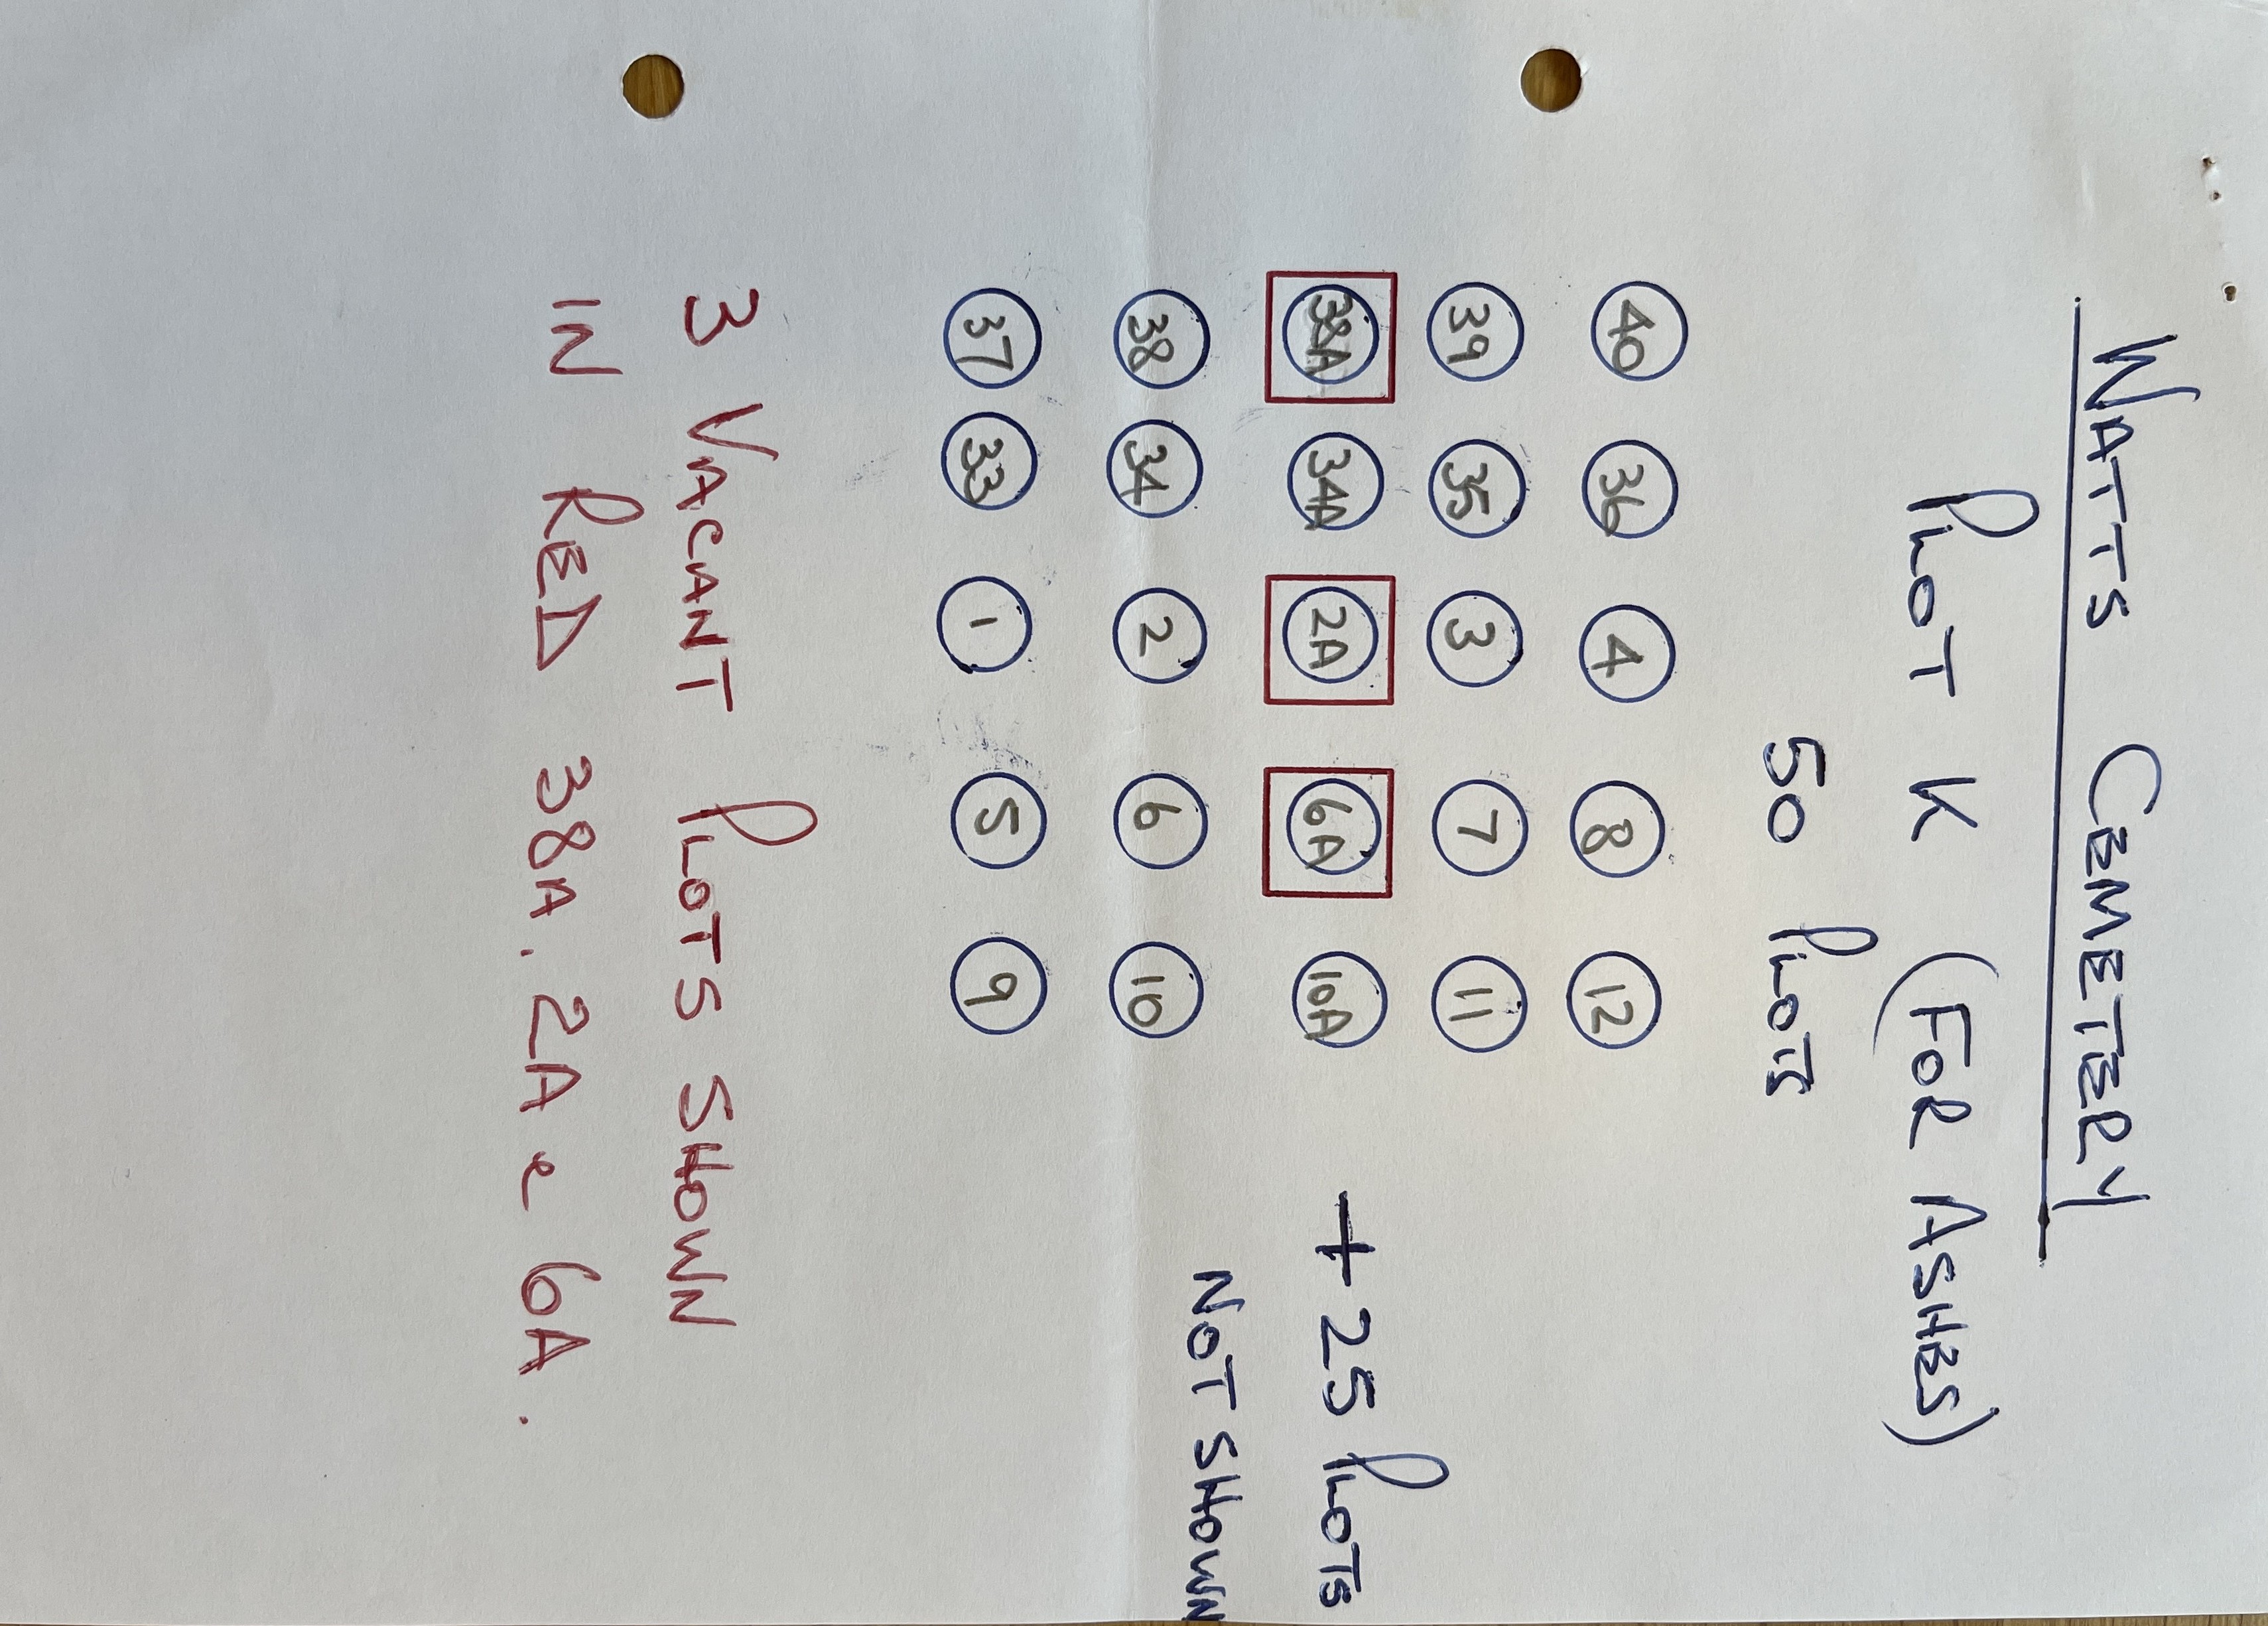 WATTS CEMETERY
PLOT K (FOR ASHES)
50 PLOTS
40 36 4 8 12
39 35 3 7 11
38A 34A 2A 6A 10A + 25 PLOTS
NOT SHOWN
38 34 2 6 10
37 33 1 5 9
3 VACANT PLOTS SHOWN
IN RED 38A. 2A & 6A.